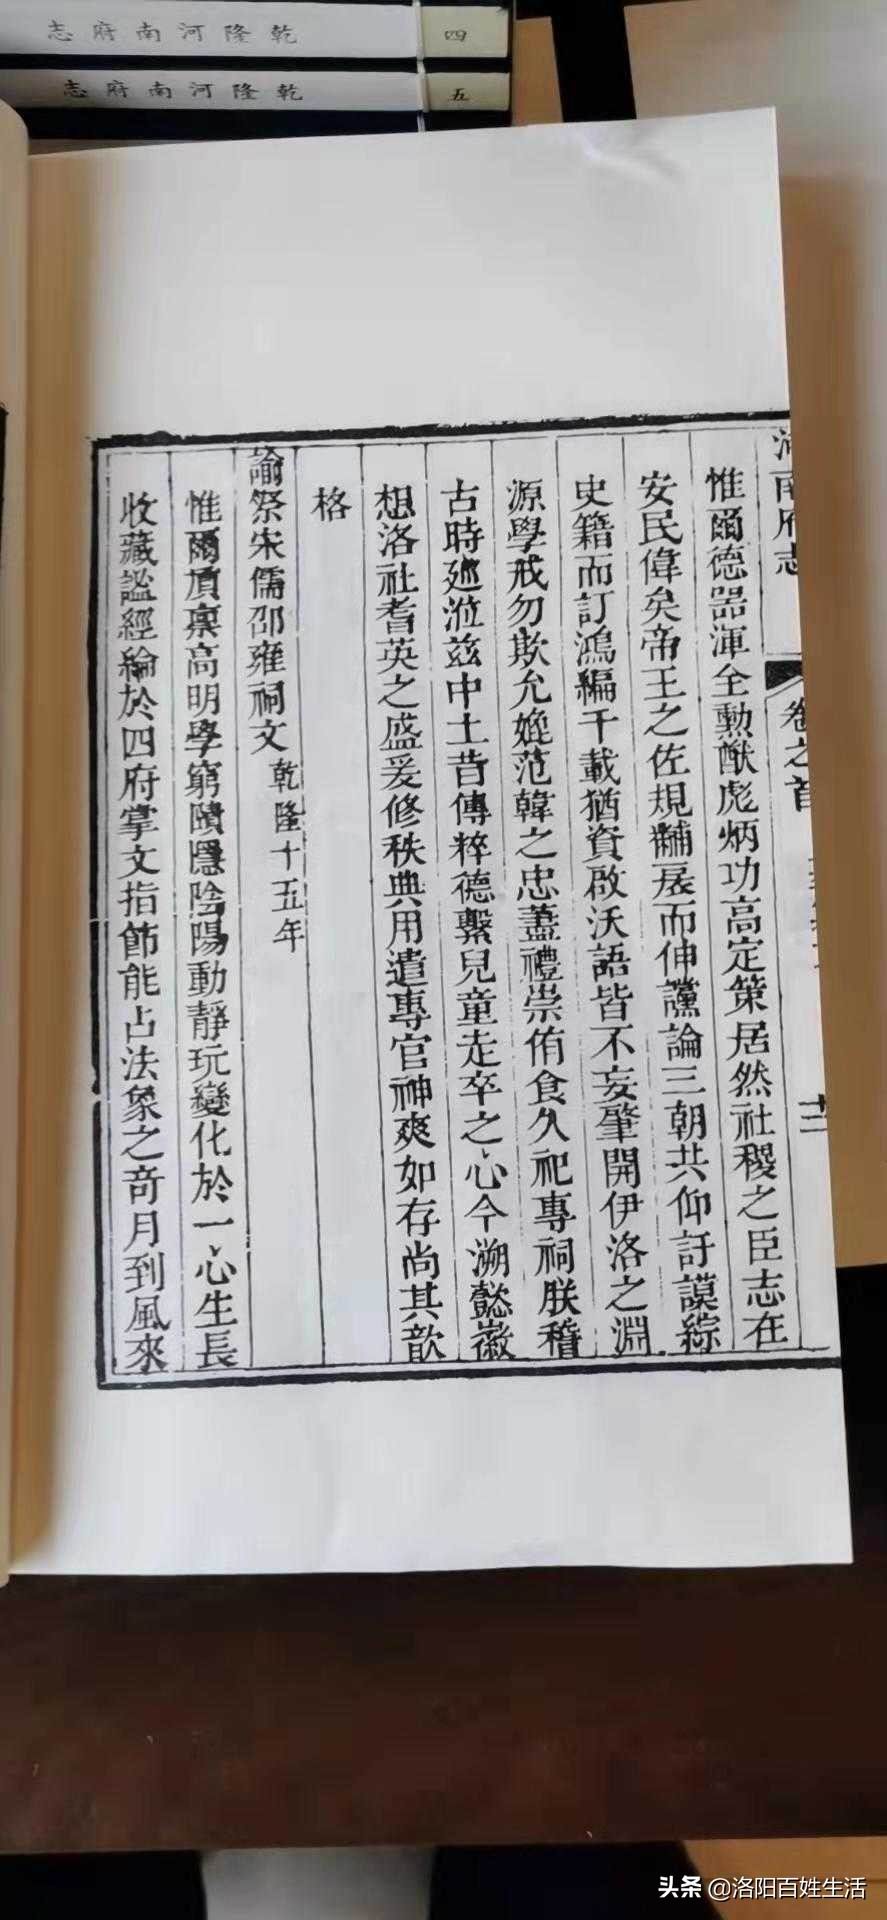 乾隆河南府志
四
乾隆河南府志
五
河南府志
卷之首
惟爾德器渾全勳猷彪炳功高定策居然社稷之臣志在
安民偉矣帝王之佐規黼扆而伸讜論三朝共仰訏謨綜
史籍而訂鴻編千載猶資啟沃語皆不妄肇開伊洛之淵
源學戒勿欺允媲范韓之忠藎禮崇侑食久祀專祠朕稽
古時廵涖茲中土昔傳粹德繫兒童走卒之心今溯懿徽
想洛社耆英之盛爰修秩典用遣專官神爽如存尚其歆
格
諭祭宋儒邵雍祠文 乾隆十五年
惟爾質禀高明學窮賾隱陰陽動靜玩變化於一心生長
收藏謐經綸於四府掌文指節能占法象之奇月到風來
头条 @洛阳百姓生活